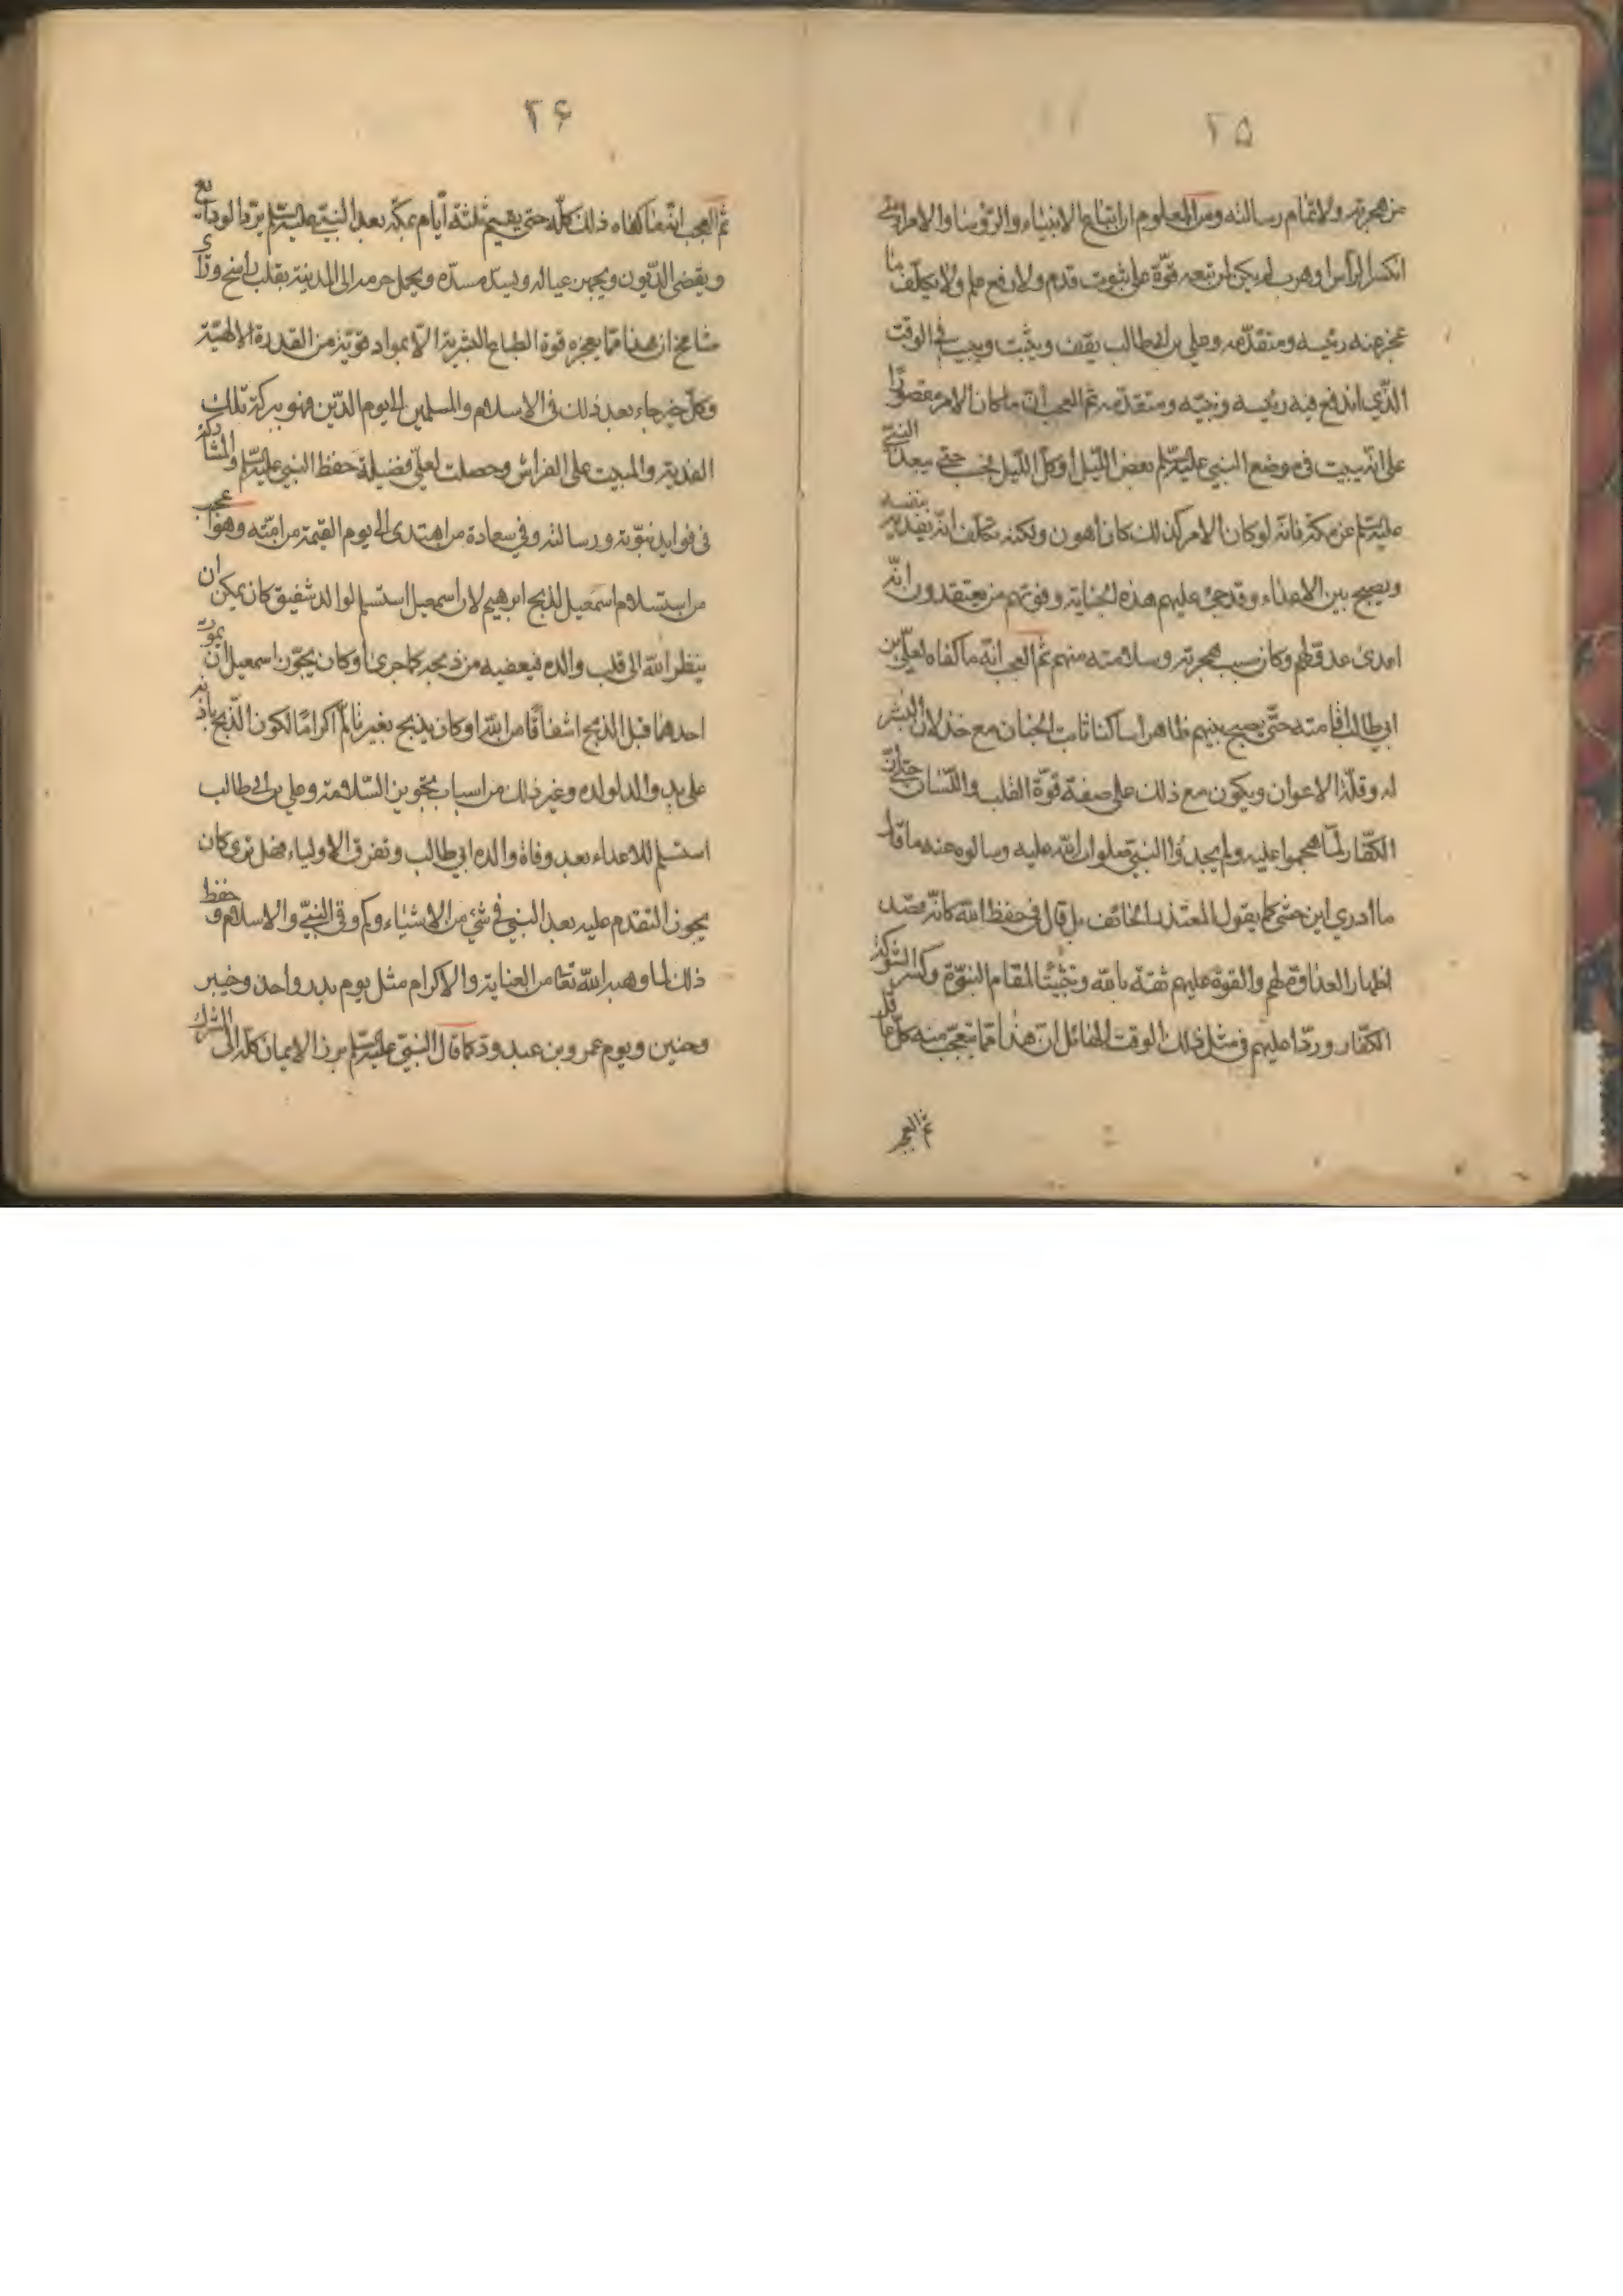 ٢٥
عن هجرته ولا تمام رسالته ومن المعلوم ان اتباع الانبياء والرؤسا والامرا متى
انكسر الرأس او هرب لم يكن لمن تبعه قوّة على ثبوت قدم ولا رفع علم ولا يكلّف ما
عجز عنه رئيسه ومتقدّمه وعلي بن ابي طالب يقف ويثبت ويبيت في الوقت
الذّي اندفع فيه رئيسه ونبيّه ومتقدّمه ثم العجب انّ ما كان الامر مقصورًا
على انّه يبيت في موضع النبي عليه السّلم بعض اللّيل او كلّ اللّيل فحسب حتى يبعد النبيّ
عليه السّلم عن مكّة فانّه لو كان الامر كذلك كان اهون ولكنه تكلّف انّه يفديه بنفسه
ويصبح بين الاعداء وقد جنى عليهم هذه الجناية وفوّتهم من يعتقدون انّه
اعدى عدوّ لهم وكان سبب هجرته وسلامته منهم ثم العجب انّه ما كفاه لعليّ بن
ابي طالب اقامته حتّى يصبح بينهم ظاهرا ساكنا ثابت الجنان مع خذلان البشر
له وقلّة الاعوان ويكون مع ذلك على صفة قوّة القلب واللّسان حتّى انّ
الكفّار لمّا هجموا عليه ولم يجدوا النبيّ صلوات الله عليه وسالوه عنه ما قال
ما ادري اين حتى كما يقول المعتذر الخائف بل قال في حفظ الله كانّه قصد
اظهار العداوة لهم والقوة عليهم ثقة بالله وتثبيتًا لمقام النبوّة وكسر الشوكة
الكفّار وردّا عليهم في مثل ذلك الوقت الهائل انّ هذا ممّا يتعجّب منه كلّ عاقل
ثم العجب
٢۶
ثم العجب انّه ما كفاه ذلك كلّه حتى يقيم ثلثة ايّام بمكّة بعد النبيّ عليه السّلم يردّ الودايع
ويقضي الدّيون ويجهز عياله ويسدّ مسدّه ويحمل حرمه الى المدينة بقلب راسخ وراى
شامخ ان هذا ممّا يعجز قوة الطباع البشرية الّا بمواد قويّة من القدرة الالهيّة
وكلّ خير جاء بعد ذلك في الاسلام والمسلمين الى يوم الدّين فهو ببركة تلك
الفدية والمبيت على الفراش وحصلت لعليّ فضيلة حفظ النبي عليه السّلم والمشاركة
في فوايد نبوّته ورسالته وفي سعادة من اهتدى الى يوم القيمة من امّته وهو اعجب
من استسلام اسمعيل لذبح ابرهيم لان اسمعيل استسلم لوالد شفيق كان يمكن ان
ينظر الله الى قلب والده فيعفيه من ذبحه كما جرى او كان يجوّز اسمعيل ان يموت
احدهما قبل الذبح اشفاقًا من الله او كان يذبح بغير تالّم اكرامًا لكون الذّبح باذنه
على يد والد لولده وغير ذلك من اسباب تجويز السّلامة وعلي بن ابي طالب
استسلم للاعداء بعد وفاة والده ابي طالب وتفرق الاولياء فهل ترى كان
يجوز التقدم عليه بعد النبي في شئ من الاشياء وكم وقى النبيّ والاسلام وحفظ
ذلك لما وهبه الله تعا من العناية والاكرام مثل يوم بدر واحد وخيبر
وحنين ويوم عمرو بن عبد ودّ كما قال النبيّ عليه السّلم برز الايمان كلّه الى الشرك